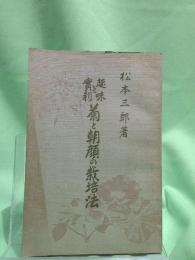 松本三郎著
趣味と
實利
菊と朝顔の栽培法